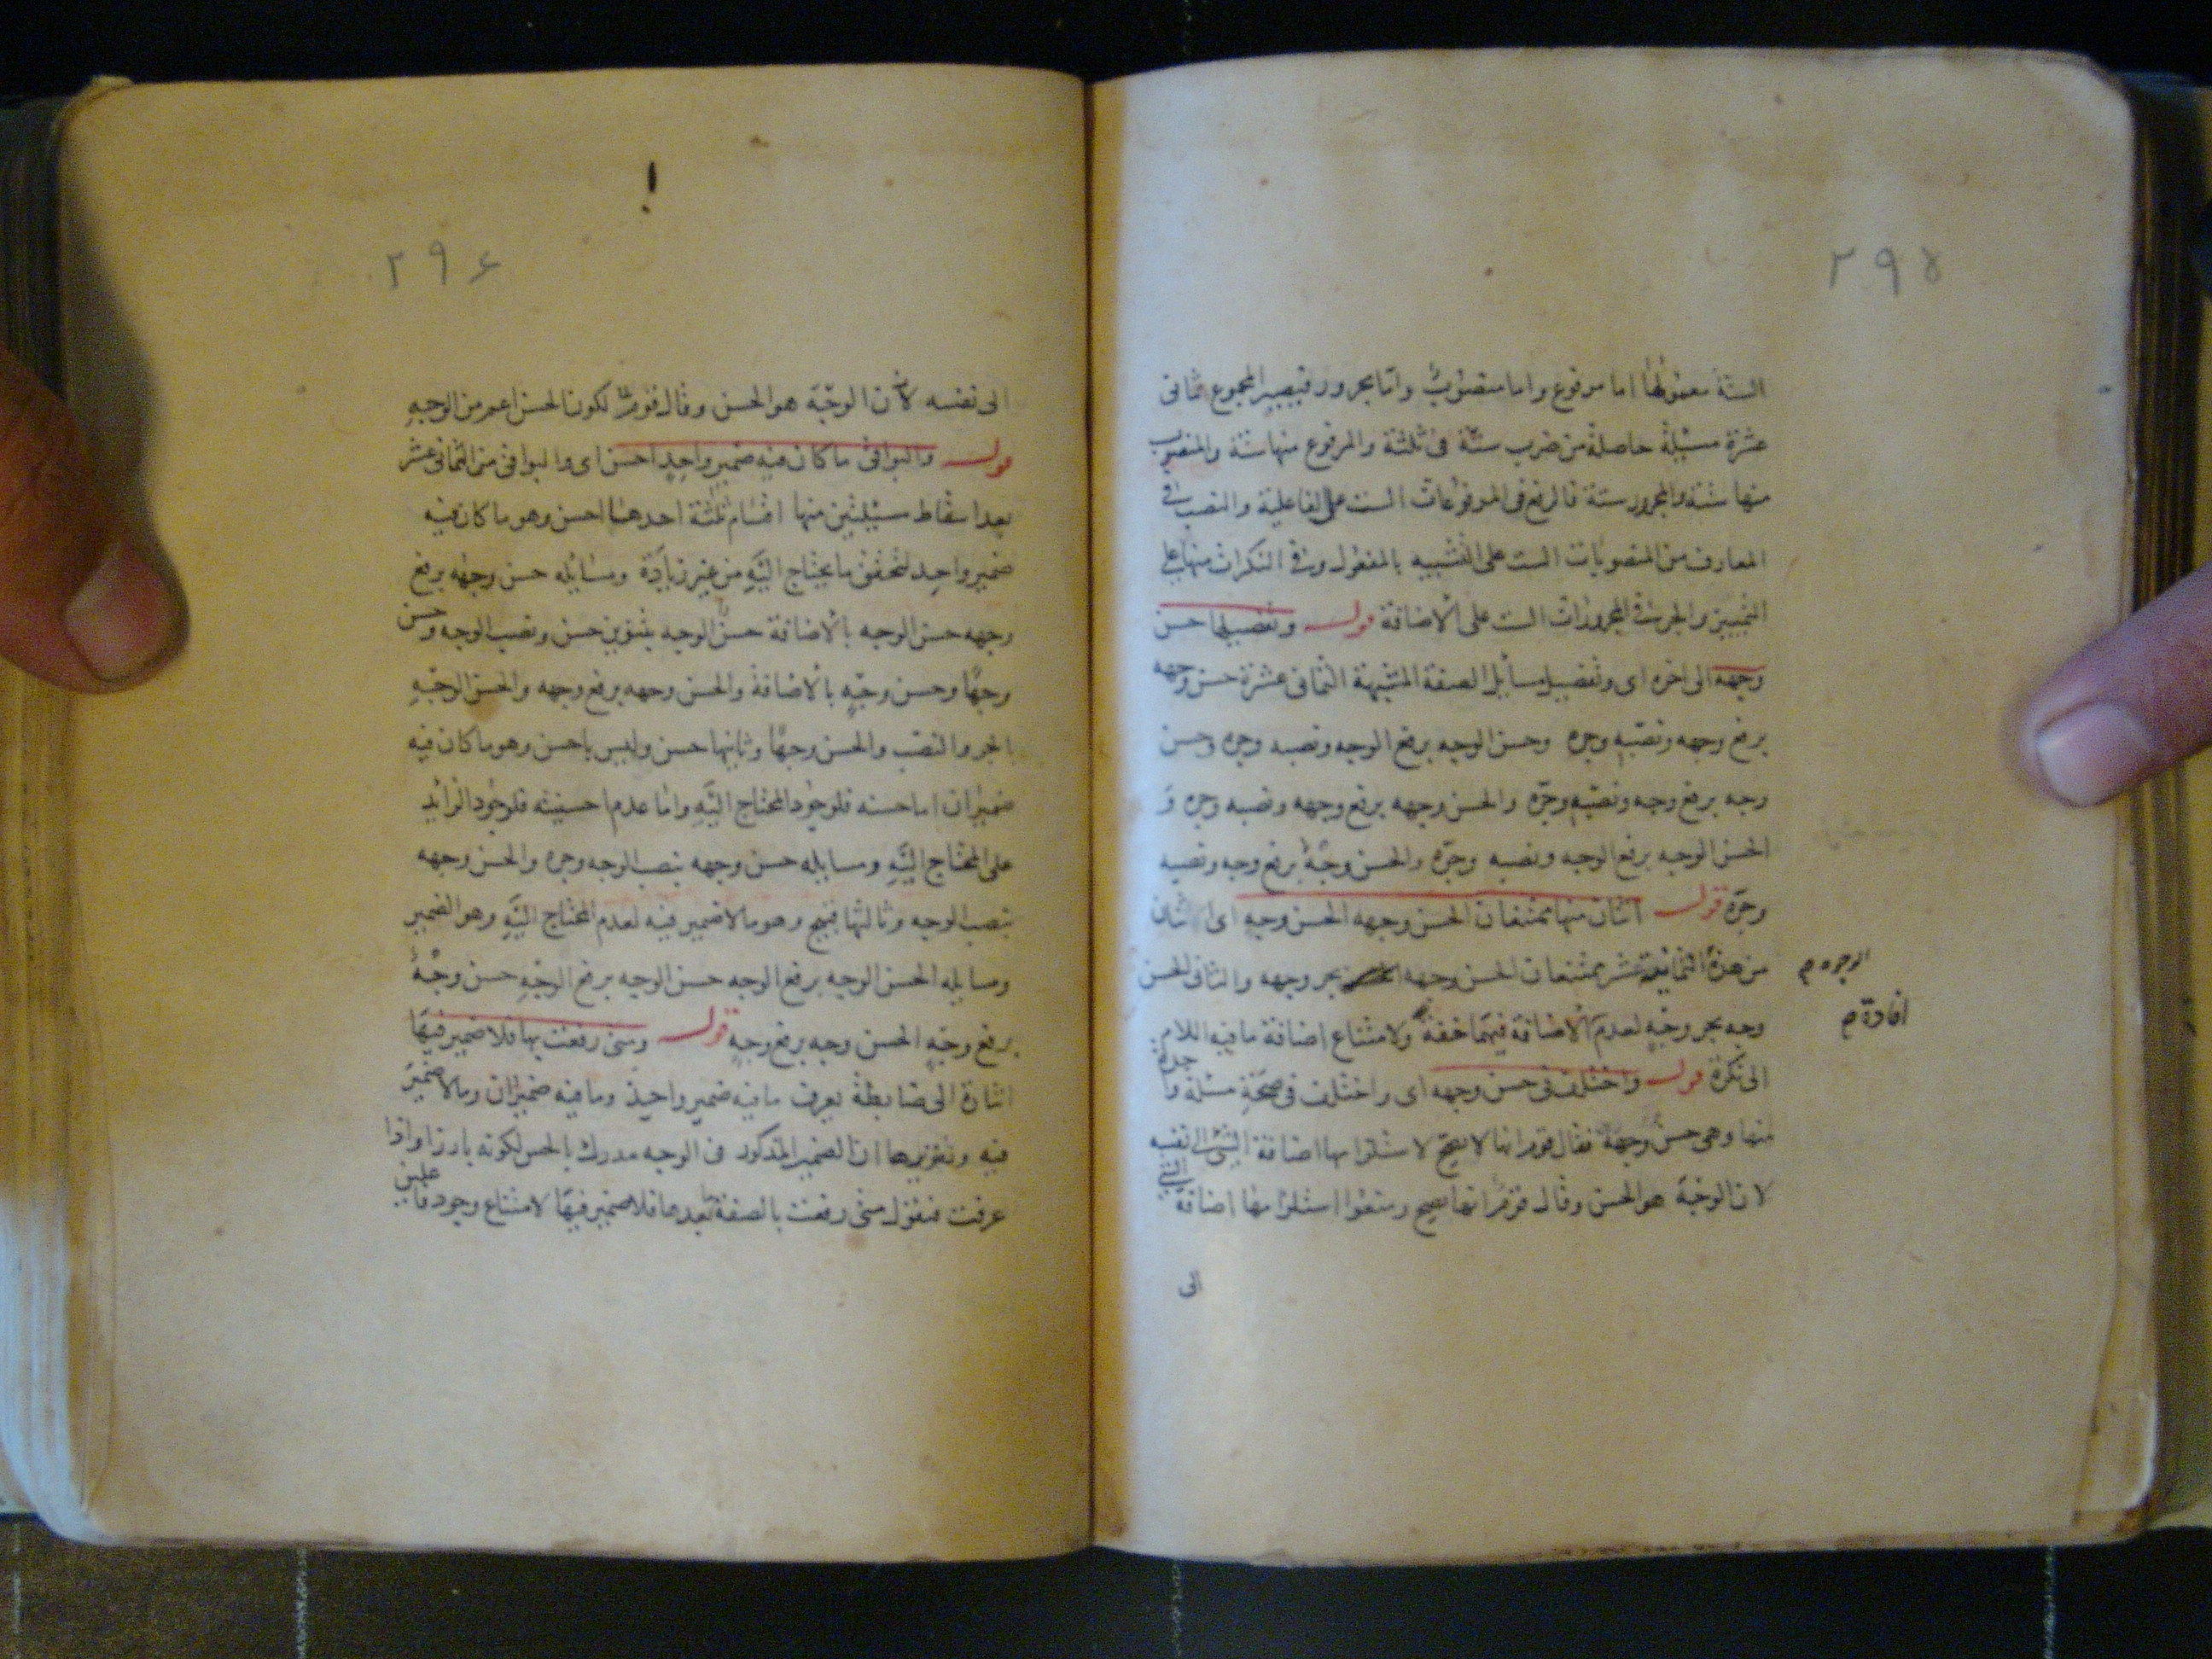 ٢٩٥
الستة معمولها اما مرفوع واما منصوب واما مجرور فيصير المجموع ثمانى
عشرة مسئلة حاصلة من ضرب ستة فى ثلثة والمرفوع منها ستة والمنصوب
منها ستة والمجرور ستة فالرفع فى المرفوعات الست على الفاعلية والنصب فى
المعارف من المنصوبات الست على التشبيه بالمفعول وفى النكرات منها على
التمييز والجر فى المجرورات الست على الاضافة قوله وتفصيلها حسن
وجهه الى اخره اى وتفصيل مسائل الصفة المشبهة الثمانى عشرة حسن وجهه
برفع وجهه ونصبه وجره وحسن الوجه برفع الوجه ونصبه وجره وحسن
وجه برفع وجه ونصبه وجره والحسن وجهه برفع وجهه ونصبه وجره و
الحسن الوجه برفع الوجه ونصبه وجره والحسن وجه برفع وجه ونصبه
وجره قوله اثنان منها ممتنعان الحسن وجهه الحسن وجه اى اثنان
من هذه الثمانية عشر ممتنعان الحسن وجهه بجر وجهه والثانى الحسن
الوجوه م
وجه بجر وجه لعدم الاضافة فيهما خفة ولامتناع اضافة ما فيه اللام
افادة م
الى نكرة قوله واختلف فى حسن وجهه اى واختلف فى صحة مسئلة واحدة
منها وهى حسن وجهه فقال قوم انها لا تصح لاستلزامها اضافة الشئ الى نفسه
لان الوجه هو الحسن وقال قوم انها تصح ومنعوا استلزامها اضافة الشئ
الى
٢٩۶
الى نفسه لان الوجه هو الحسن وقال قوم لكون الحسن اعم من الوجه
قوله والبواقى ما كان فيه ضمير واحد احسن اى والبواقى من الثمانى عشر
بعد اسقاط مسئلتين منها اقسام ثلثة احدها احسن وهو ما كان فيه
ضمير واحد لتحقق ما يحتاج اليه من غير زيادة ومسائله حسن وجهه برفع
وجهه حسن الوجه بالاضافة حسن الوجه بتنوين حسن ونصب الوجه وحسن
وجها وحسن وجه بالاضافة والحسن وجهه برفع وجهه والحسن الوجه
بالجر والنصب والحسن وجها وثانيها حسن وليس باحسن وهو ما كان فيه
ضميران اما حسنه فلوجود المحتاج اليه واما عدم احسنيته فلوجود الزائد
على المحتاج اليه ومسايله حسن وجهه بنصب الوجه وجره والحسن وجهه
بنصب الوجه وثالثها قبيح وهو ما لا ضمير فيه لعدم المحتاج اليه وهو الضمير
ومسايله الحسن الوجه برفع الوجه حسن الوجه برفع الوجه حسن وجه
برفع وجه الحسن وجه برفع وجه قوله ومتى رفعت بها فلا ضمير فيها
اشارة الى ضابطة يعرف ما فيه ضمير واحد وما فيه ضميران وما لا ضمير
فيه وتقريرها ان الضمير المذكور فى الوجه مدرك بالحس لكونه بارزا واذا
عرفت فنقول متى رفعت بالصفة ما بعدها فلا ضمير فيها لامتناع وجود فاعلين